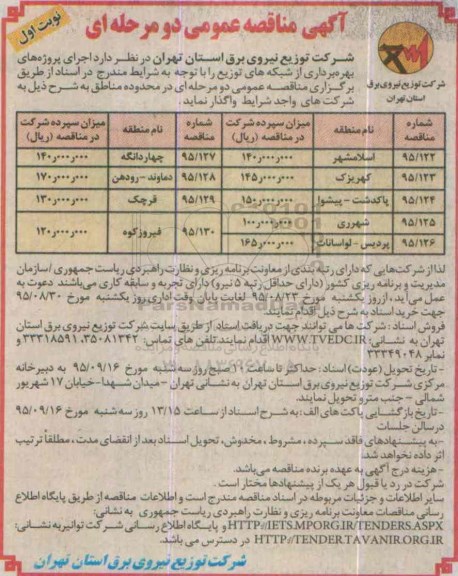 نوبت اول
آگهی مناقصه عمومی دو مرحله ای
شرکت توزیع نیروی برق
استان تهران
شرکت توزیع نیروی برق استان تهران در نظر دارد اجرای پروژه‌های
بهره‌برداری از شبکه های توزیع را با توجه به شرایط مندرج در اسناد از طریق
برگزاری مناقصه عمومی دو مرحله ای در محدوده مناطق به شرح ذیل به
شرکت های واجد شرایط واگذار نماید.
شماره مناقصه نام منطقه میزان سپرده شرکت در مناقصه (ریال) شماره مناقصه نام منطقه میزان سپرده شرکت در مناقصه (ریال)
۹۵/۱۲۲ اسلامشهر ۱۴۰٫۰۰۰٫۰۰۰ ۹۵/۱۲۷ چهاردانگه ۱۴۰٫۰۰۰٫۰۰۰
۹۵/۱۲۳ کهریزک ۱۴۵٫۰۰۰٫۰۰۰ ۹۵/۱۲۸ دماوند - رودهن ۱۷۰٫۰۰۰٫۰۰۰
۹۵/۱۲۴ پاکدشت - پیشوا ۱۵۰٫۰۰۰٫۰۰۰ ۹۵/۱۲۹ قرچک ۱۳۰٫۰۰۰٫۰۰۰
۹۵/۱۲۵ شهرری ۱۰۰٫۰۰۰٫۰۰۰ ۹۵/۱۳۰ فیروزکوه ۱۲۰٫۰۰۰٫۰۰۰
۹۵/۱۲۶ پردیس - لواسانات ۱۶۵٫۰۰۰٫۰۰۰
لذا از شرکت‌هایی که دارای رتبه بندی از معاونت برنامه ریزی و نظارت راهبردی ریاست جمهوری / سازمان
مدیریت و برنامه ریزی کشور (دارای حداقل رتبه ۵ نیرو) دارای تجربه و سابقه کاری می‌باشند دعوت به
عمل می‌آید، از روز یکشنبه مورخ ۹۵/۰۸/۲۳ لغایت پایان وقت اداری روز یکشنبه مورخ ۹۵/۰۸/۳۰
جهت خرید اسناد به شرح ذیل اقدام نمایند.
فروش اسناد : شرکت ها می توانند جهت دریافت اسناد از طریق سایت شرکت توزیع نیروی برق استان
تهران به نشانی: WWW.TVEDC.IR اقدام نمایند. تلفن های تماس: ۳۵۰۸۱۳۴۲، ۳۳۳۱۸۵۹۱ و
نمابر ۳۳۳۴۹۰۴۸
- تاریخ تحویل (عودت) اسناد: حداکثر تا ساعت ۱۰ صبح روز سه‌شنبه مورخ ۹۵/۰۹/۱۶ به دبیرخانه
مرکزی شرکت توزیع نیروی برق استان تهران به نشانی تهران - میدان شهدا - خیابان ۱۷ شهریور
شمالی - جنب مترو تحویل نمایند.
- تاریخ بازگشایی پاکت های الف: به شرح اسناد از ساعت ۱۳/۱۵ روز سه شنبه مورخ ۹۵/۰۹/۱۶
در سالن جلسات
- به پیشنهادهای فاقد سپرده، مشروط، مخدوش، تحویل اسناد بعد از انقضای مدت، مطلقاً ترتیب
اثر داده نخواهد شد.
- هزینه درج آگهی به عهده برنده مناقصه می‌باشد.
شرکت در رد یا قبول هر یک از پیشنهادها مختار است.
سایر اطلاعات و جزئیات مربوطه در اسناد مناقصه مندرج است و اطلاعات مناقصه از طریق پایگاه اطلاع
رسانی مناقصات معاونت برنامه ریزی و نظارت راهبردی ریاست جمهوری به نشانی:
HTTP://IETS.MPORG.IR/TENDERS.ASPX و پایگاه اطلاع رسانی شرکت توانیر به نشانی:
HTTP://TENDER.TAVANIR.ORG.IR در دسترس می باشد.
شرکت توزیع نیروی برق استان تهران